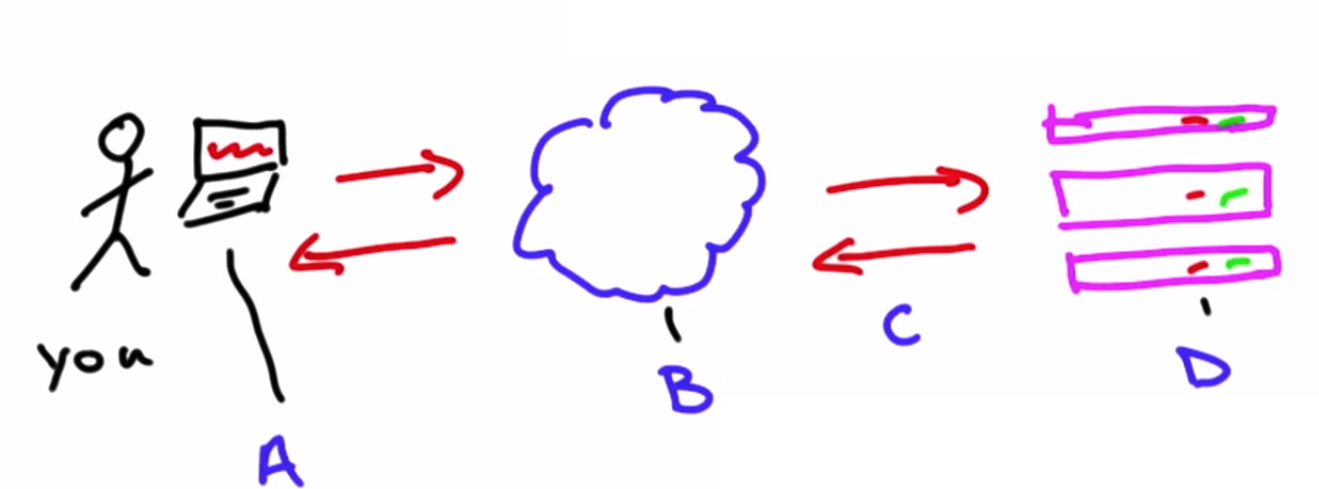 you
A
B
C
D